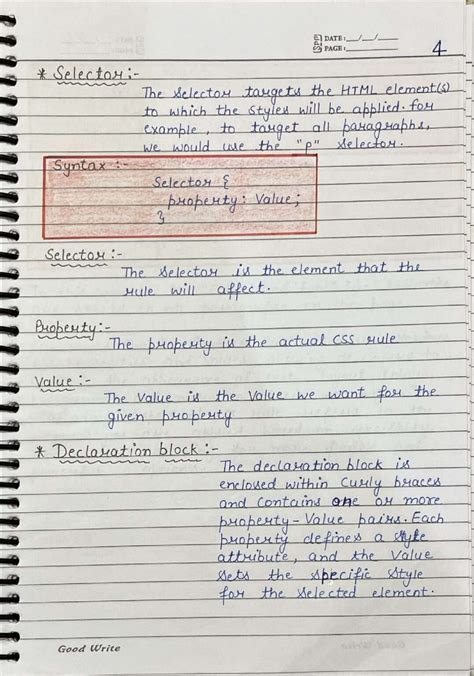 SPP DATE: __/__/__
PAGE:
4
* Selector :-
The selector targets the HTML element(s)
to which the styles will be applied. for
example, to target all paragraphs,
we would use the "p" selector.
Syntax :-
Selector {
property: Value;
}
Selector :-
The selector is the element that the
rule will affect.
Property :-
The property is the actual CSS rule
Value :-
The Value is the Value we want for the
given property
* Declaration block :-
The declaration block is
enclosed within Curly braces
and Contains one or more
property-Value pairs. Each
property defines a style
attribute, and the Value
sets the specific style
for the selected element.
Good Write